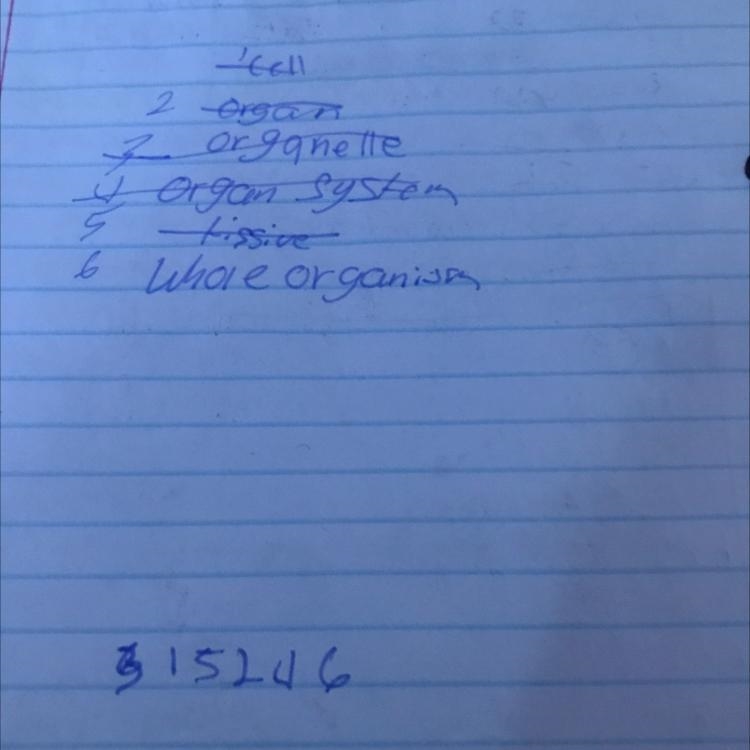 1 Cell
2 Organ
3 Organelle
4 Organ System
5 tissive
6 Whole organism
3 1 5 2 4 6